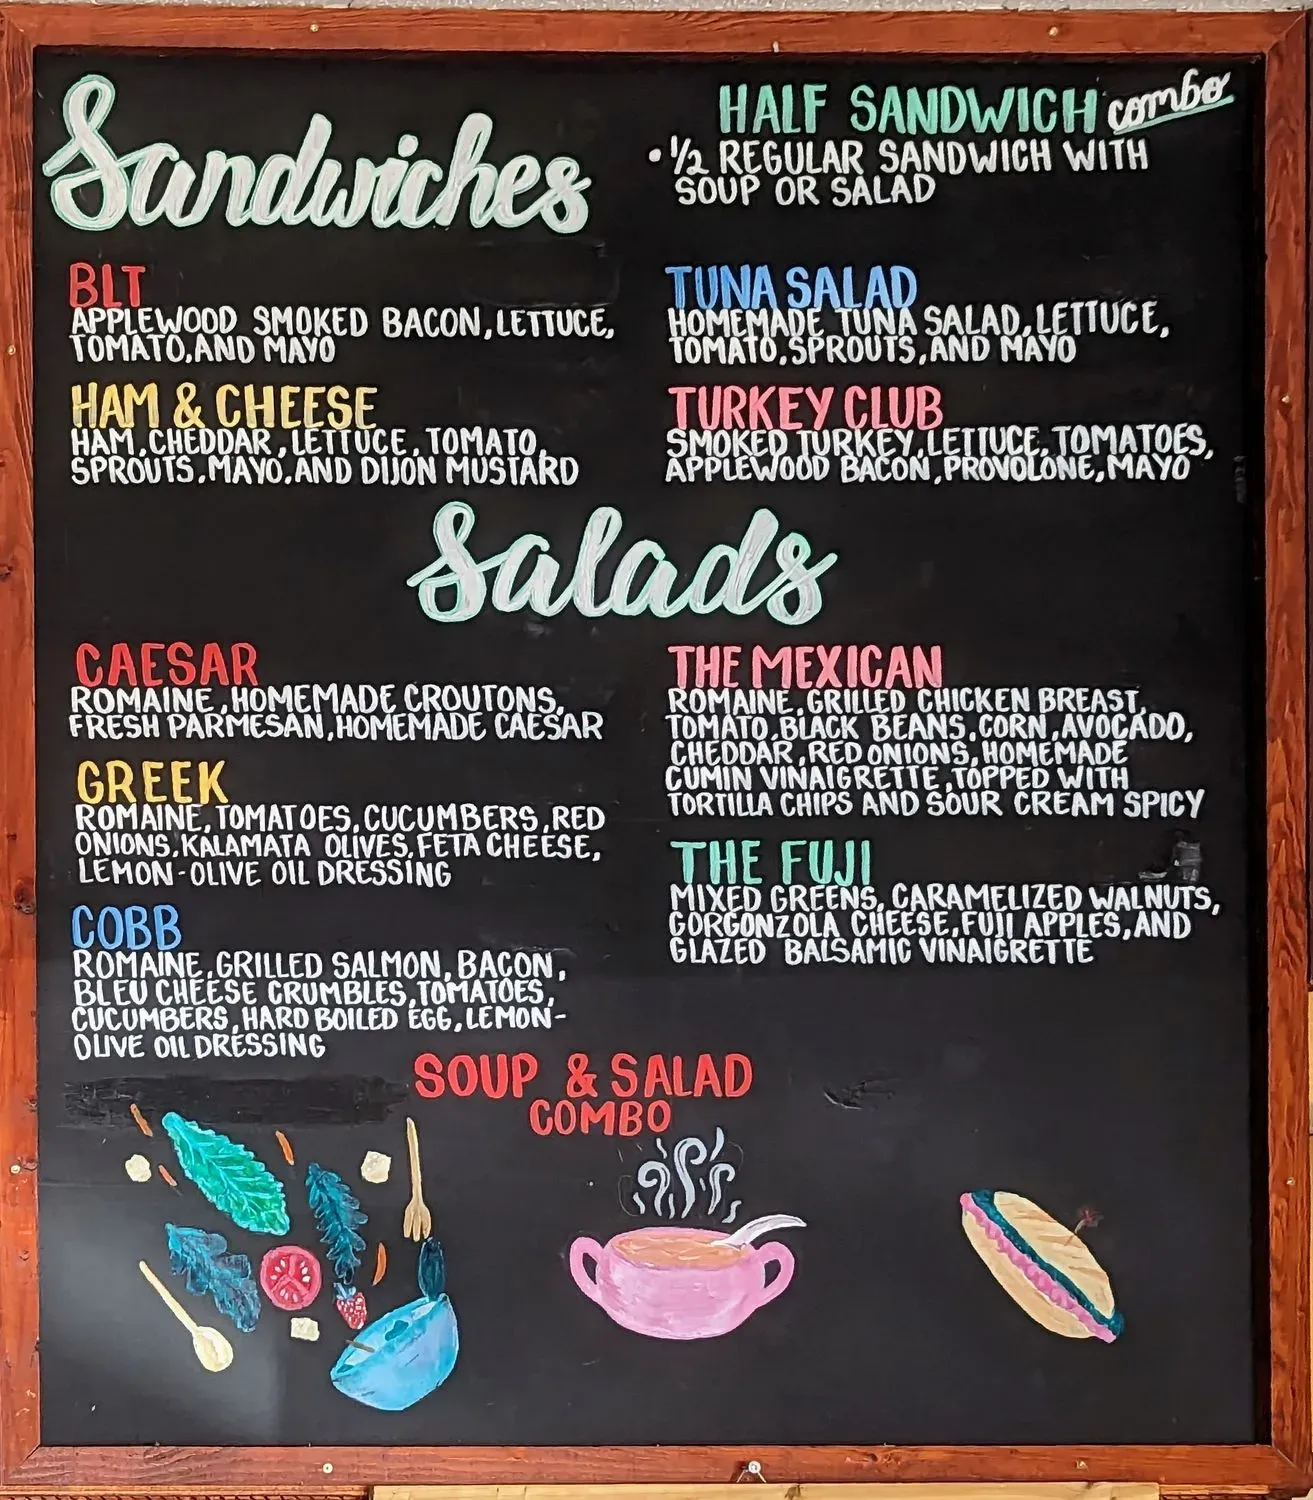 Sandwiches
HALF SANDWICH combo
• 1/2 REGULAR SANDWICH WITH
SOUP OR SALAD
BLT
APPLEWOOD SMOKED BACON, LETTUCE,
TOMATO, AND MAYO
HAM & CHEESE
HAM, CHEDDAR, LETTUCE, TOMATO,
SPROUTS, MAYO, AND DIJON MUSTARD
TUNA SALAD
HOMEMADE TUNA SALAD, LETTUCE,
TOMATO, SPROUTS, AND MAYO
TURKEY CLUB
SMOKED TURKEY, LETTUCE, TOMATOES,
APPLEWOOD BACON, PROVOLONE, MAYO
Salads
CAESAR
ROMAINE, HOMEMADE CROUTONS,
FRESH PARMESAN, HOMEMADE CAESAR
GREEK
ROMAINE, TOMATOES, CUCUMBERS, RED
ONIONS, KALAMATA OLIVES, FETA CHEESE,
LEMON-OLIVE OIL DRESSING
COBB
ROMAINE, GRILLED SALMON, BACON,
BLEU CHEESE CRUMBLES, TOMATOES,
CUCUMBERS, HARD BOILED EGG, LEMON-
OLIVE OIL DRESSING
THE MEXICAN
ROMAINE, GRILLED CHICKEN BREAST,
TOMATO, BLACK BEANS, CORN, AVOCADO,
CHEDDAR, RED ONIONS, HOMEMADE
CUMIN VINAIGRETTE, TOPPED WITH
TORTILLA CHIPS AND SOUR CREAM SPICY
THE FUJI
MIXED GREENS, CARAMELIZED WALNUTS,
GORGONZOLA CHEESE, FUJI APPLES, AND
GLAZED BALSAMIC VINAIGRETTE
SOUP & SALAD
COMBO